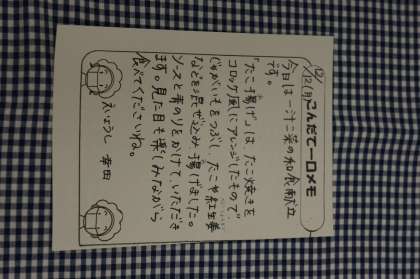 12/12(月)こんだて一口メモ
今日は一汁二菜の和食献立
です。
「たこ揚げ」は、たこ焼きを
コロッケ風にアレンジしたもので
じゃがいもをつぶし、たこや紅生姜
などを混ぜ込み揚げました。
ソースと青のりをかけていただき
ます。見た目も楽しみながら
食べてくださいね。
えいようし 幸田